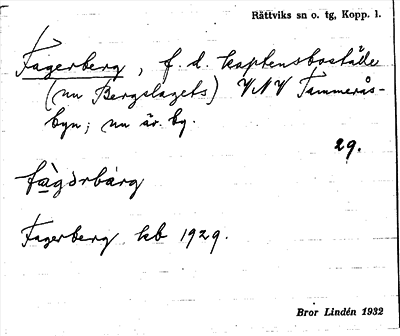 Rättviks sn o. tg, Kopp. l.
Fagerberg, f. d. kaptensboställe
(nu Bergslagets) VNV Tammerås-
byn; nu är. by.
29.
fàgərbárg
Fagerberg kb 1929.
Bror Lindén 1932